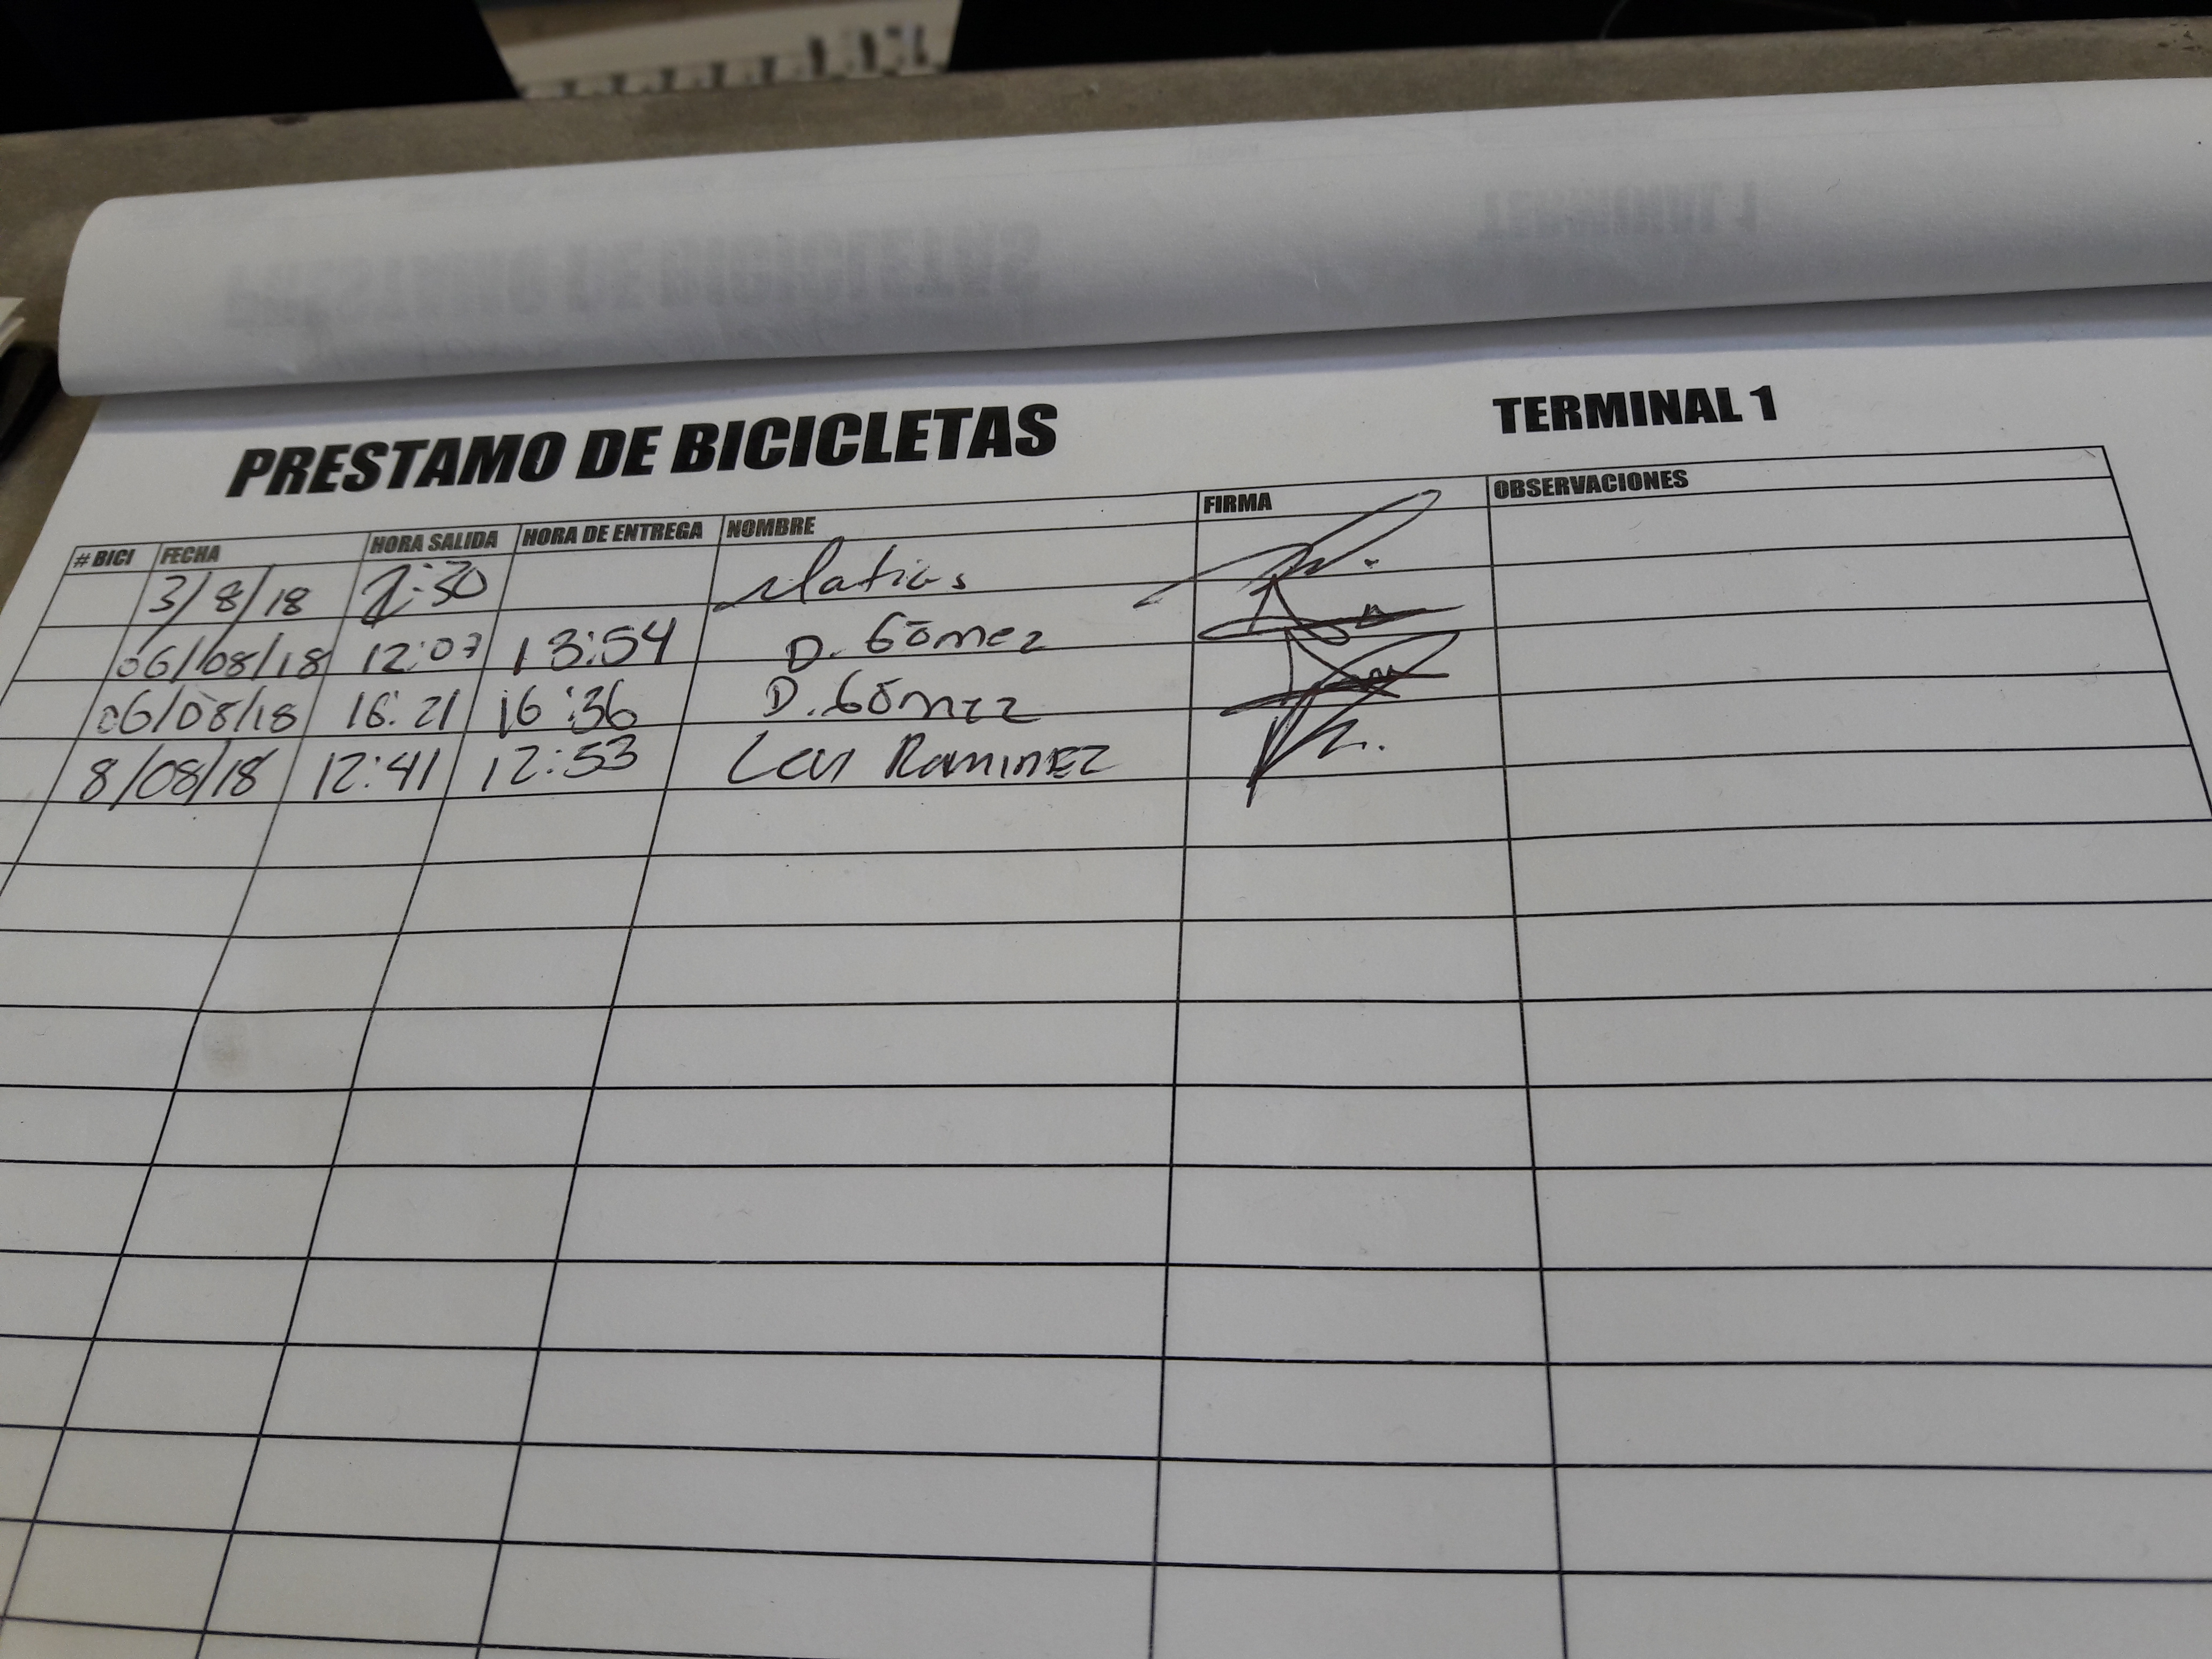 PRESTAMO DE BICICLETAS TERMINAL 1
# BICI FECHA HORA SALIDA HORA DE ENTREGA NOMBRE FIRMA OBSERVACIONES
3/8/18 Matias
06/08/18 12:07 13:54 D. Gómez
06/08/18 16:21 16:36 D. Gómez
8/08/18 12:41 12:53 Levi RAMIREZ